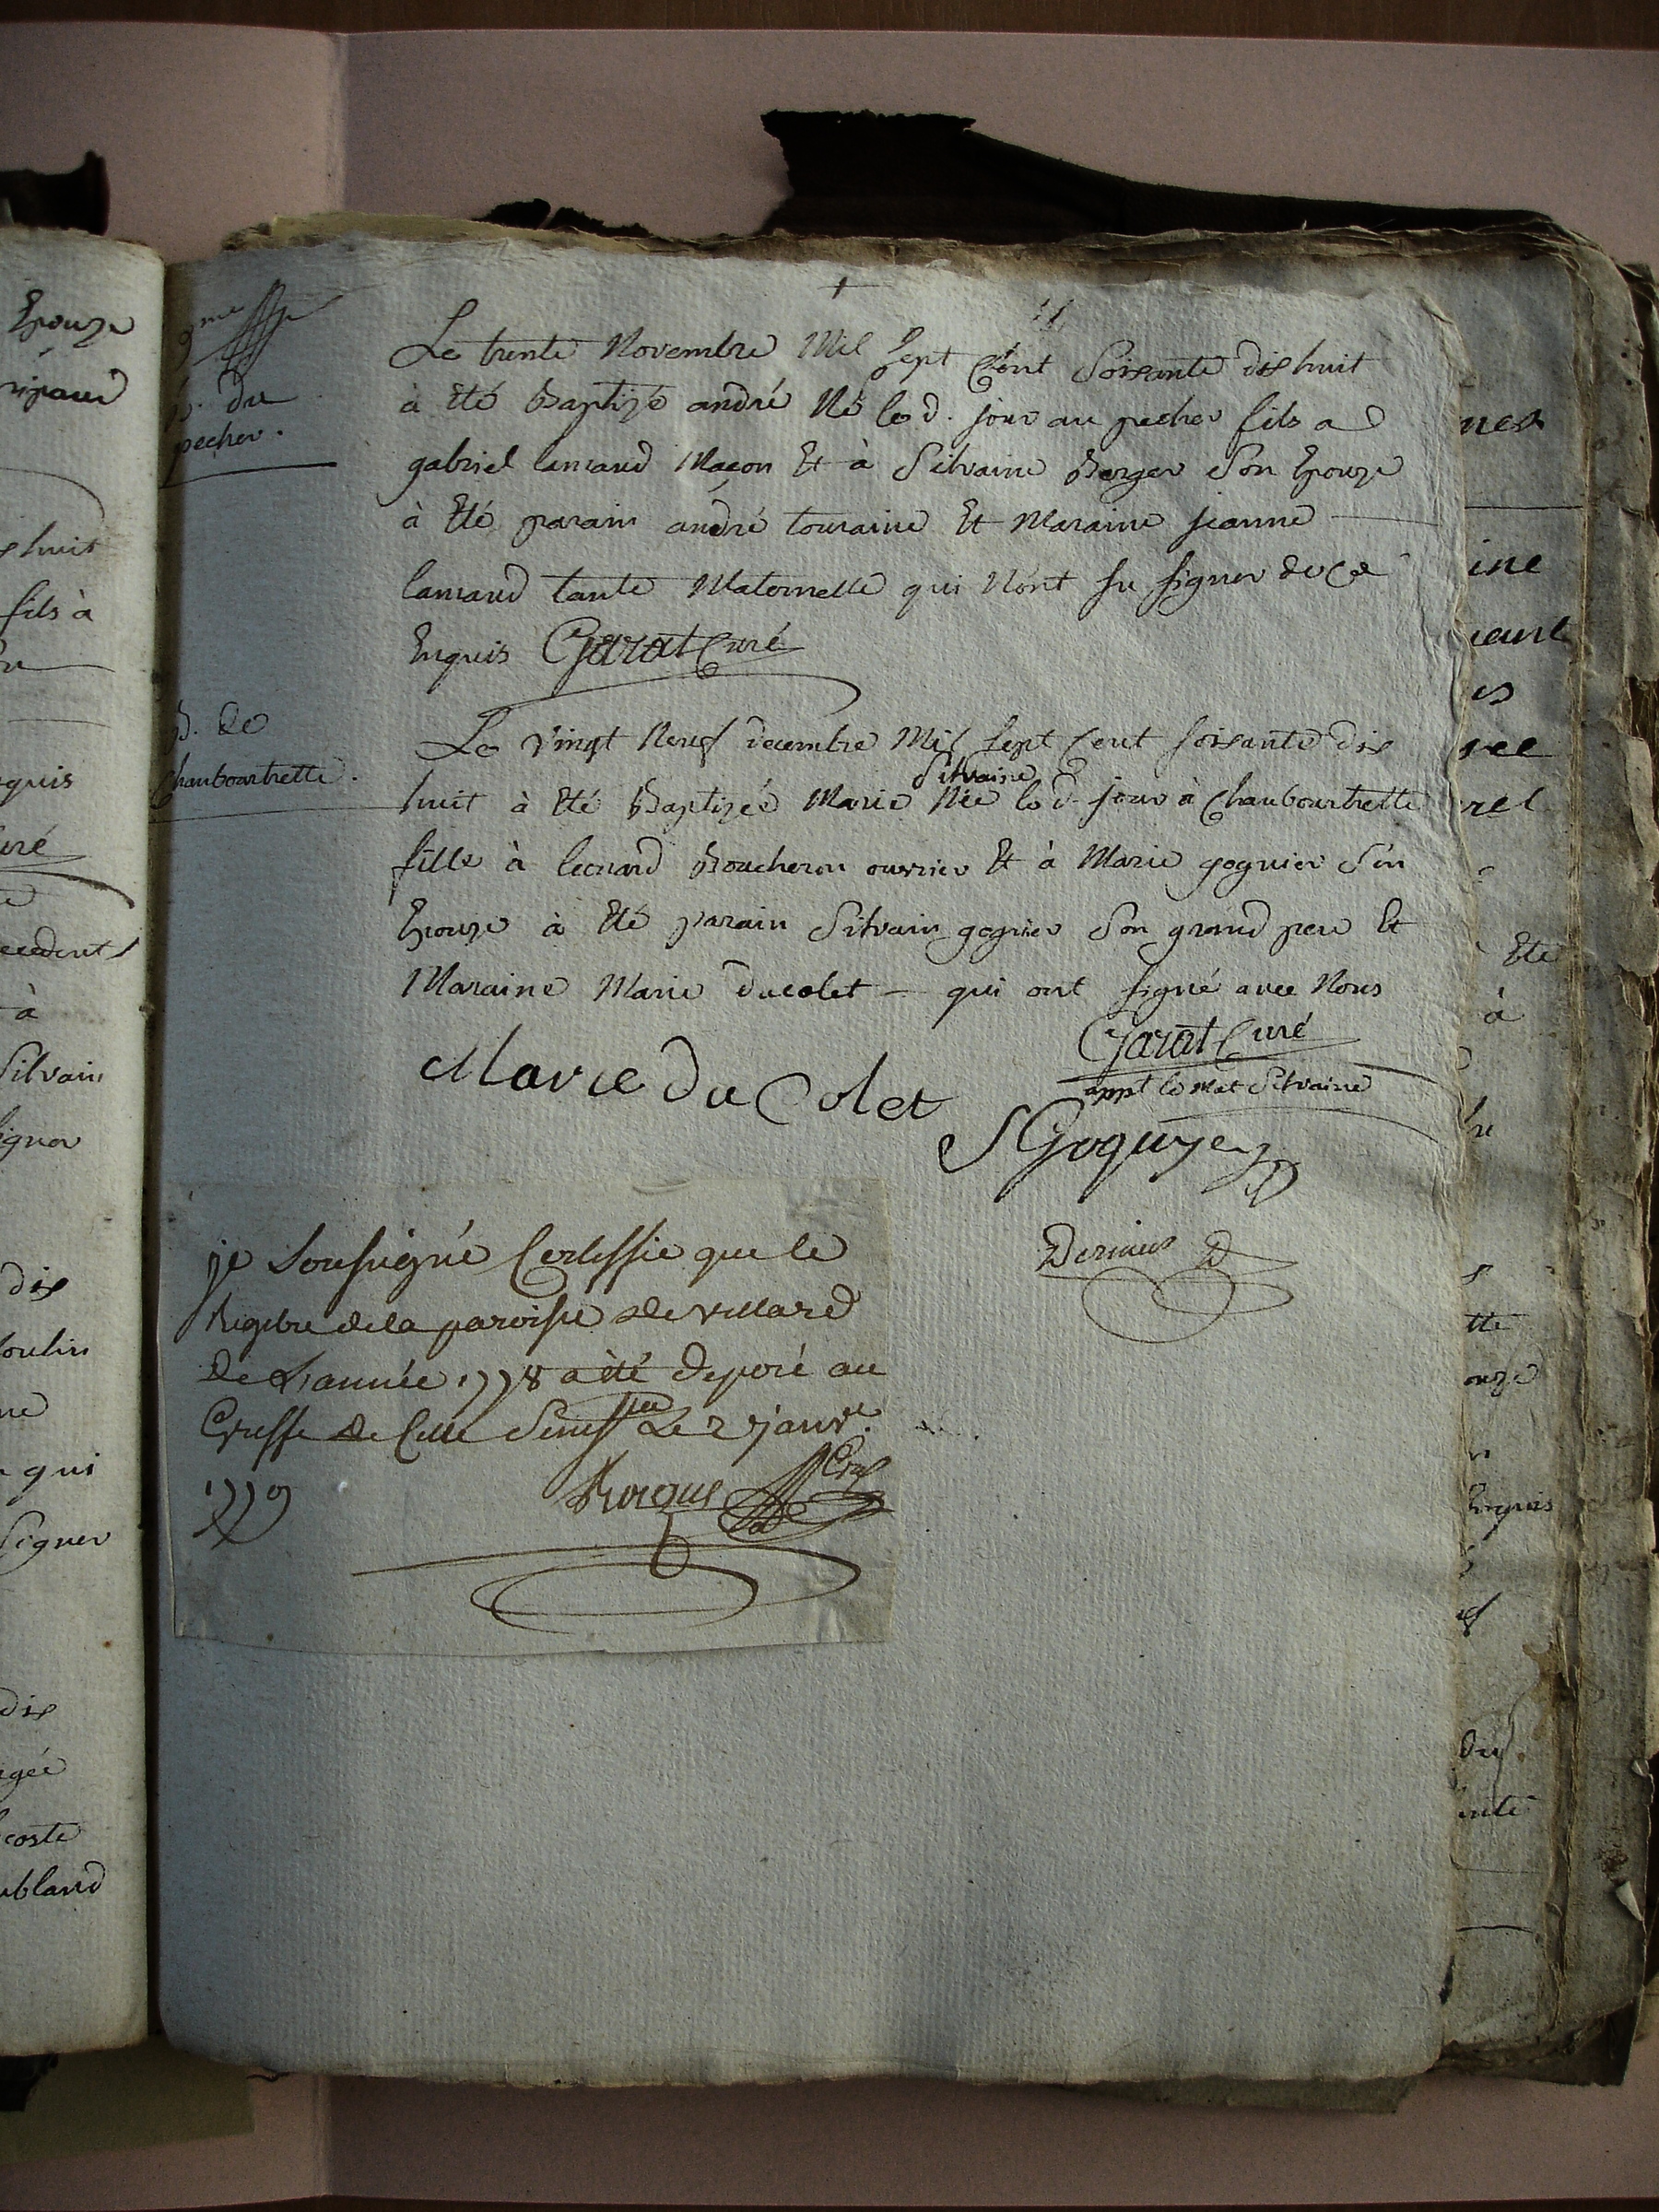 9me
B. du
pecher.
Le trente Novembre Mil Sept Cent Soixante dix huit
à Eté Baptizé andré Né led. jour au pecher fils a
gabriel lamaud Maçon Et à Silvaine Berger Son Epouze
à Eté parain andré touraine Et Maraine jeanne
lamaud tante Maternelle qui N'ont su signer de ce
Enquis Garat Curé
B. de
Chauboutrette.
Le Vingt Neuf decembre Mil Sept Cent soixante dix
Silvaine
huit à Eté Baptizée Marie Née led. jour à Chauboutrette
fille à leonard Boucheron ouvrier Et à Marie goguier Son
Epouze à Eté parain Silvain goguier Son grand pere Et
Maraine Marie Ducolet — qui ont signé avec Nous
Garat Curé
appt le mot Silvaine
Marie du Colet
S Goguyer
Dernier
je soussigné Certiffie que le
Registre de la paroisse de Villard
de L'année 1778 a été deposé au
Greffe de Cette Senessee Le 2 janvr.
1779
Epouze
huit
fils à
quis
Curé
à
Silvain
signer
dix
qui
Signer
dix
agée
coste
Eté
à
Enquis